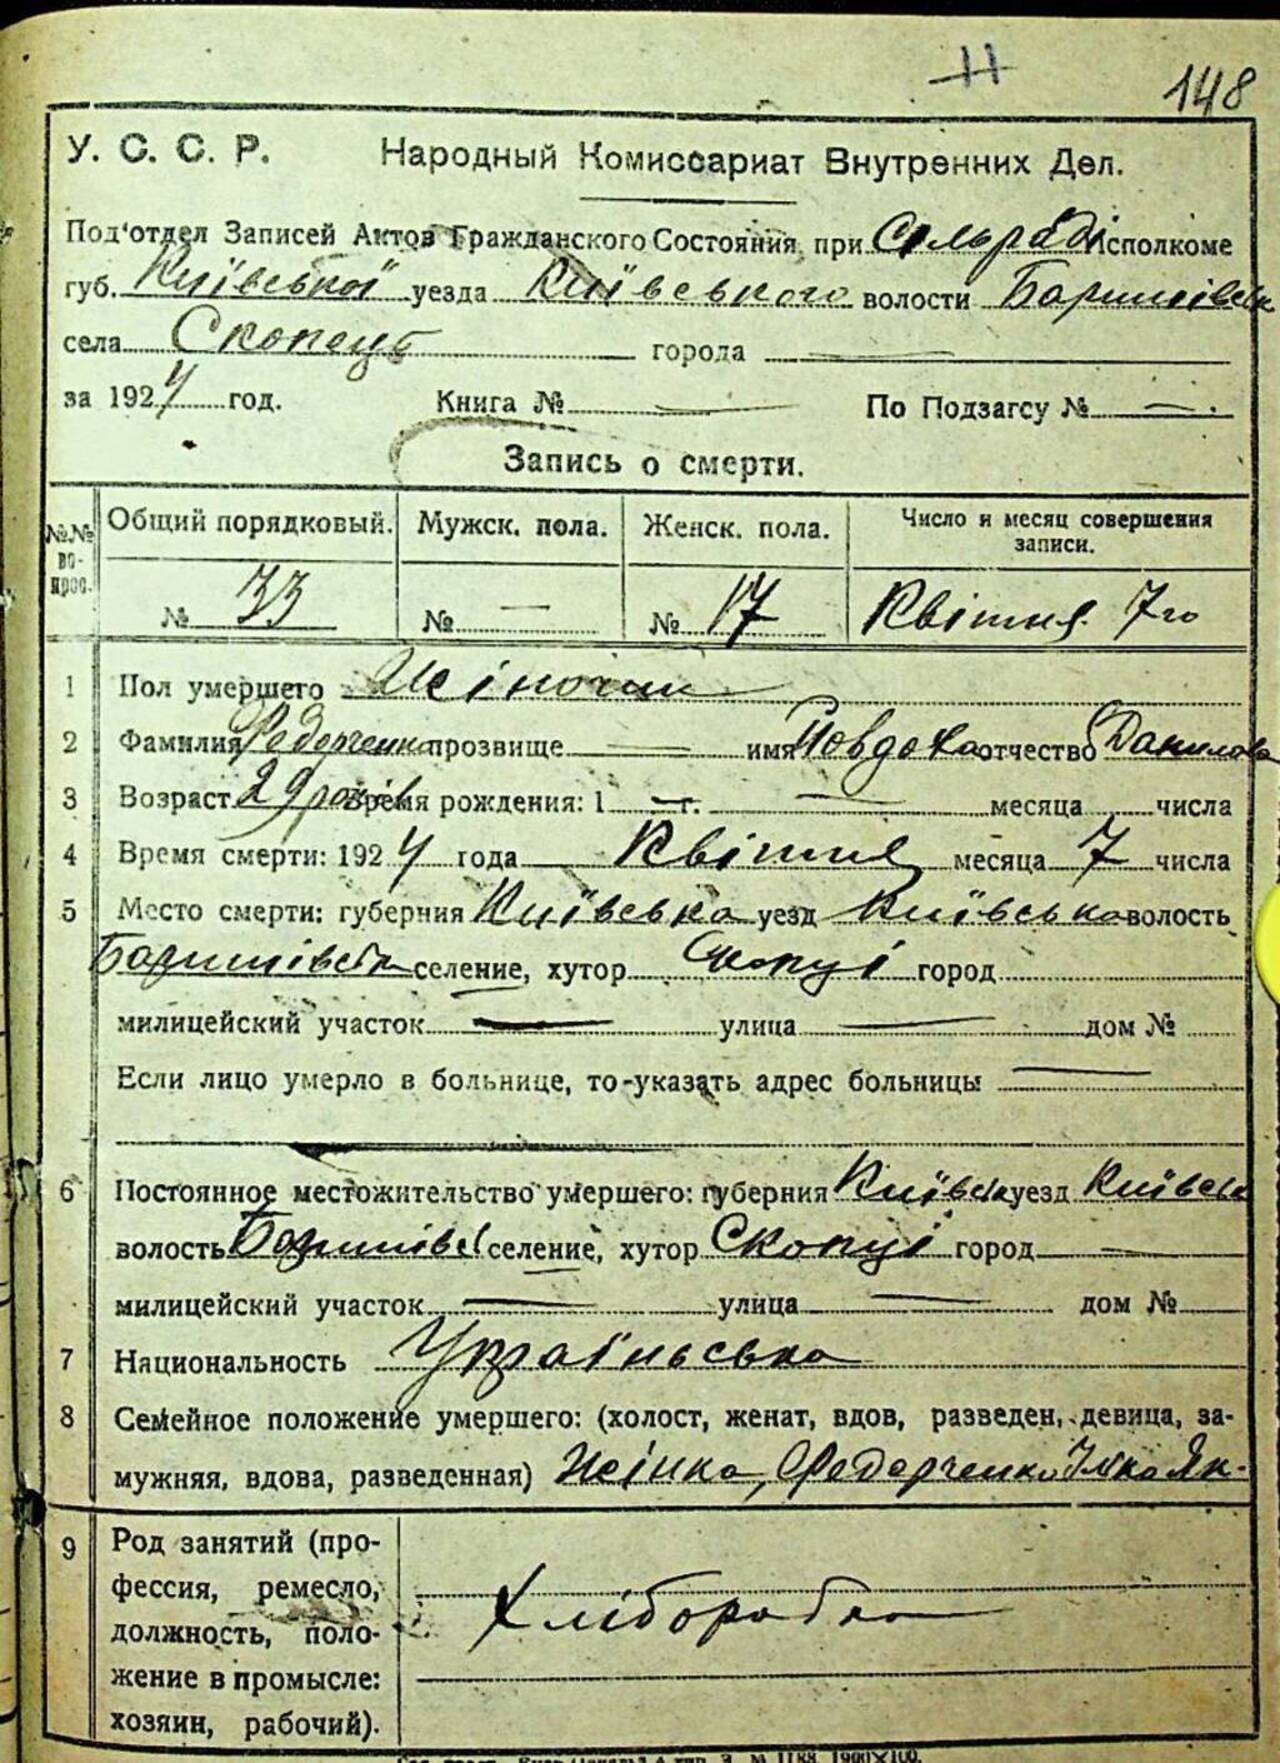 Н 148
У. С. С. Р. Народный Комиссариат Внутренних Дел.
Под'отдел Записей Актов Гражданского Состояния при Сельраді Исполкоме
губ. Київської уезда Київського волости Баришівськ
села Скопець города —
за 1924 год. Книга № — По Подзагсу № —.
Запись о смерти.
№№ вопрос. Общий порядковый. Мужск. пола. Женск. пола. Число и месяц совершения записи.
№ 33 № — № 17 Квітня 7го
1 Пол умершего Жіночии
2 Фамилия Федорченко прозвище — имя Повдоха отчество Данилова
3 Возраст 29 років Время рождения: 1 — г. — месяца числа
4 Время смерти: 1924 года Квітня месяца 7 числа
5 Место смерти: губерния Київська уезд Київська волость
Баришівська селение, хутор Скопці город
милицейский участок — улица — дом №
Если лицо умерло в больнице, то-указать адрес больницы —
6 Постоянное местожительство умершего: губерния Київськ уезд Київськ
волость Баришівсь селение, хутор Скопці город —
милицейский участок — улица — дом №
7 Национальность Українська
8 Семейное положение умершего: (холост, женат, вдов, разведен, девица, за-
мужняя, вдова, разведенная) Жінка, Федорченко Ілька Як.
9 Род занятий (про-
фессия, ремесло,
должность, поло-
жение в промысле:
хозяин, рабочий).
Хліборобка